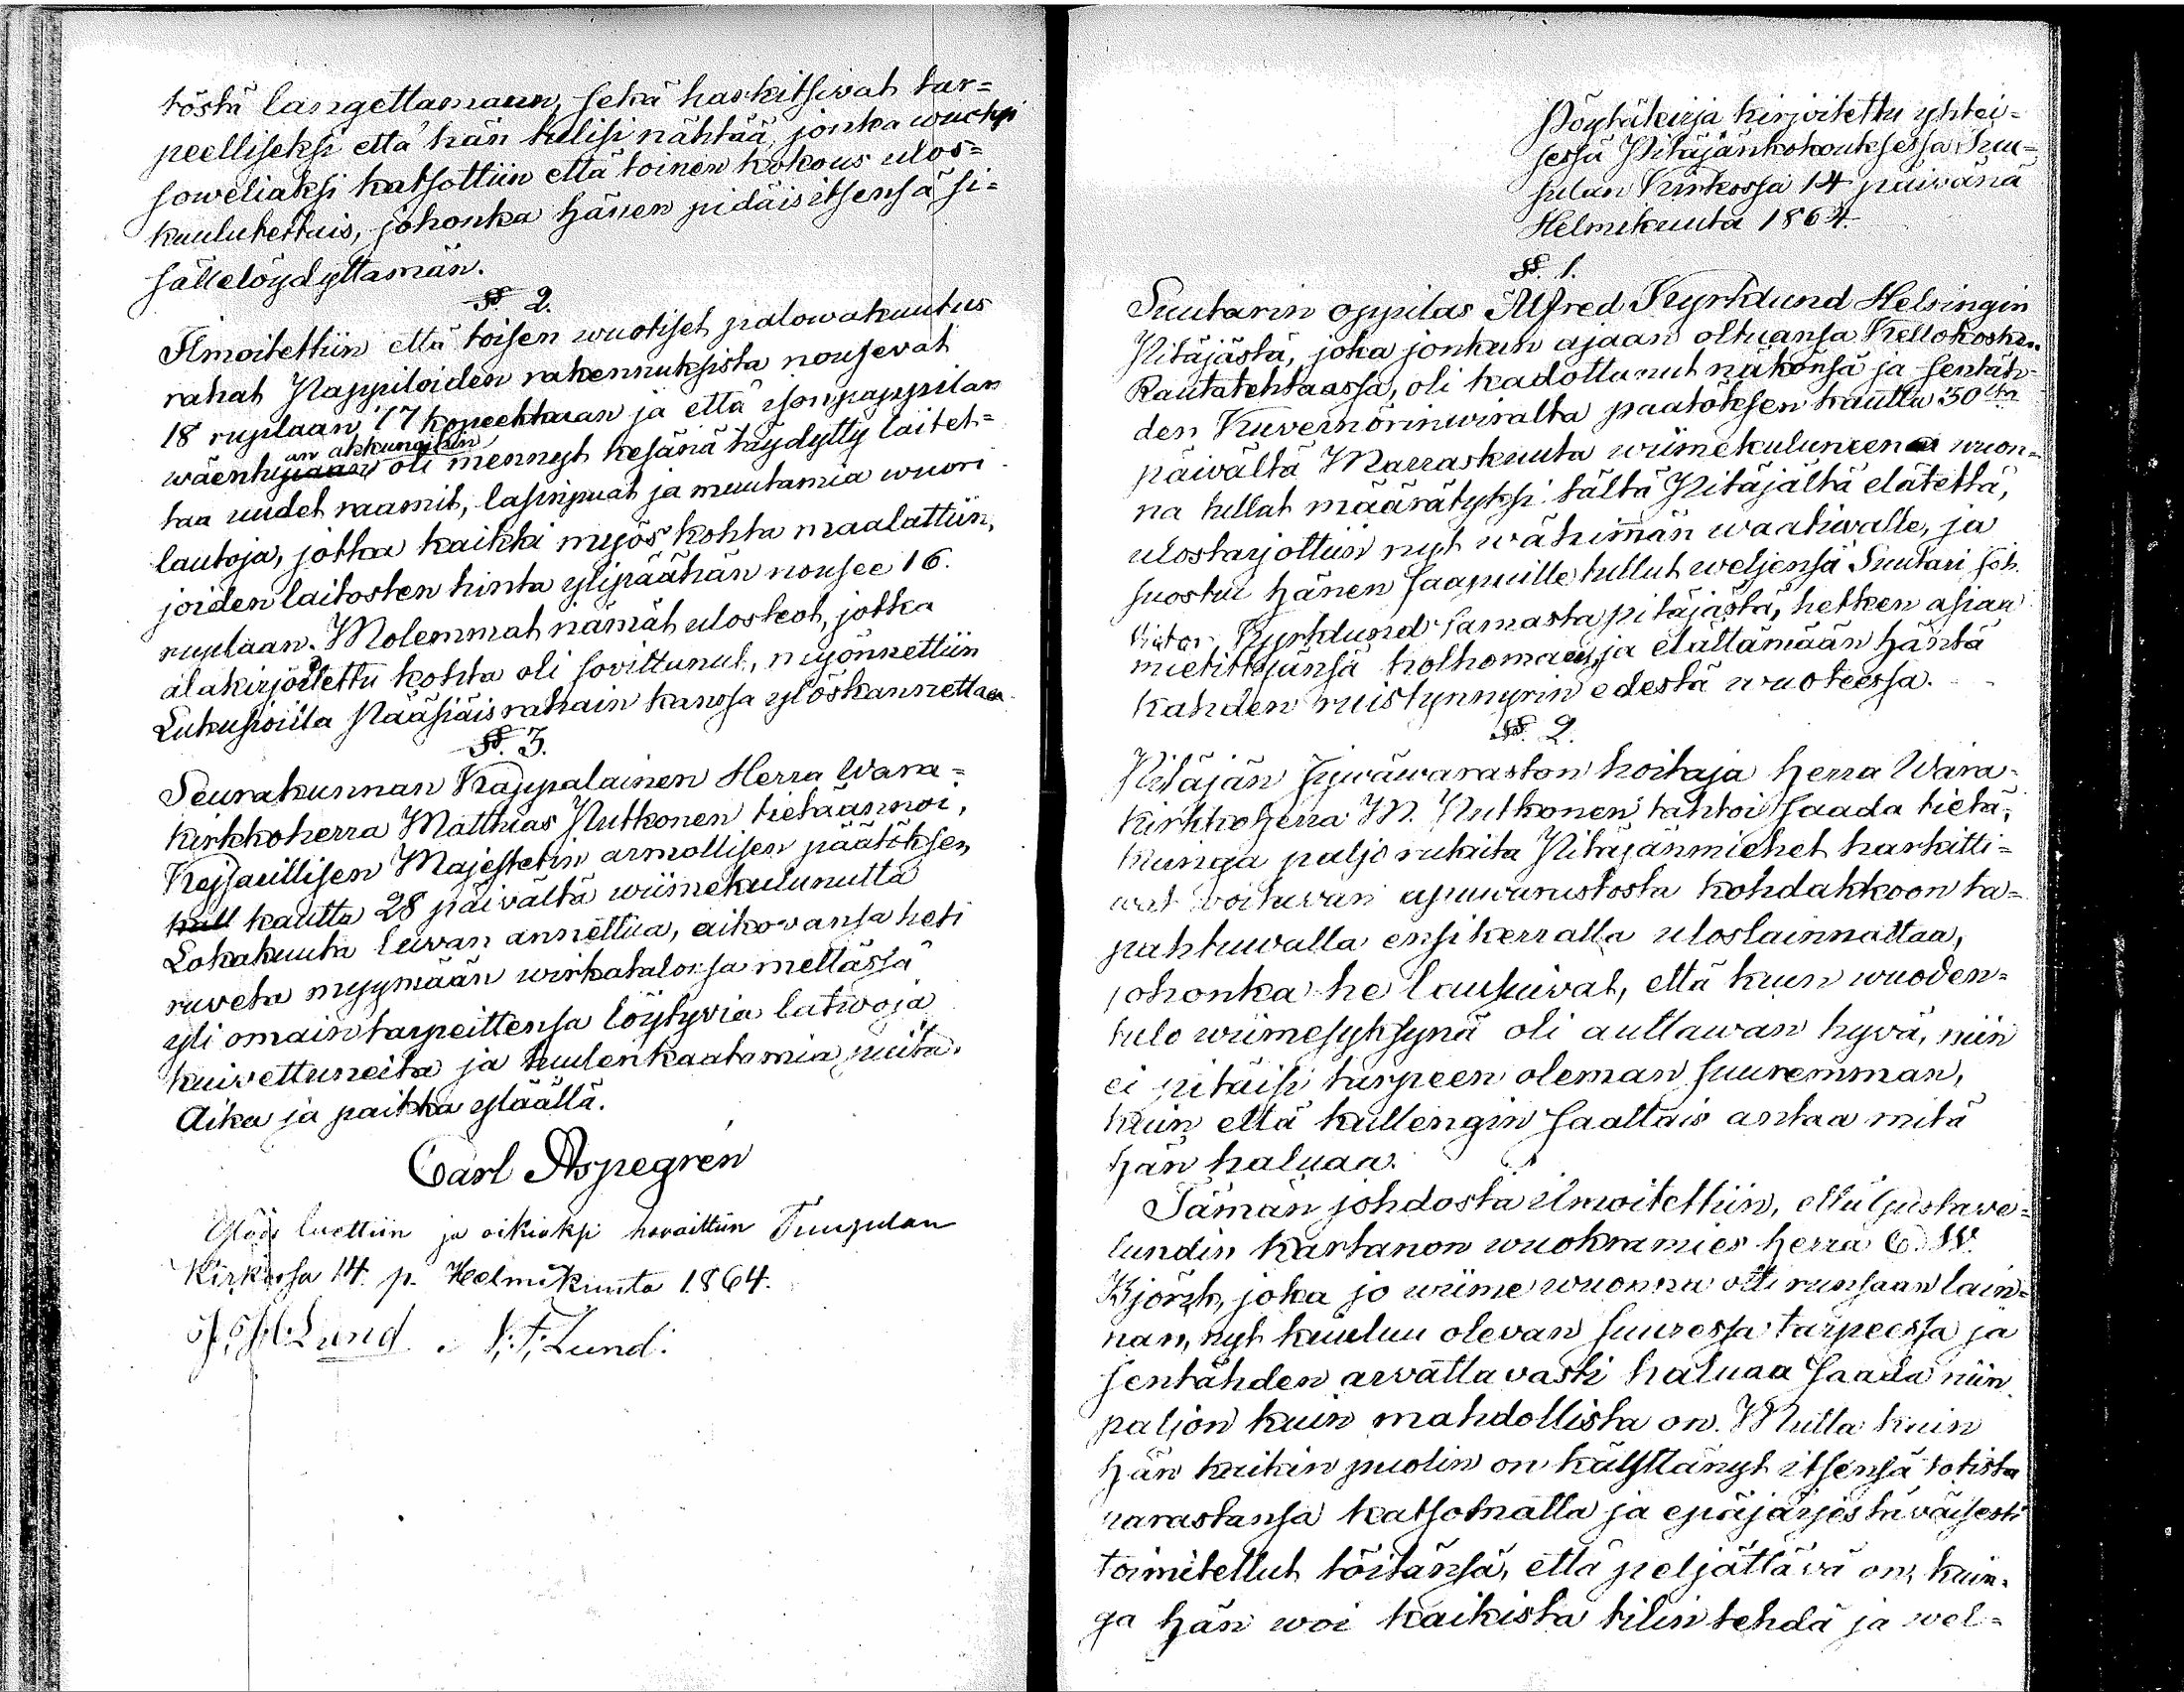 töstä langettamaan, sekä harkitsivat tar=
peelliseksi että hän tulisi nähtää, jonka wuoksi
soweliaksi katsottiin että toinen kokous ulos=
kuulutettais, johonka hänen pidäis itsensä si=
sälle löydyttämän.
§. 2.
Ilmoitettiin että toisen wuotiset palowakuutus
rahat Pappiloiden rakennuksista nousevat
18 ruplaan 17 kopeekkaan ja että isonpappilan
an akkunoihin
wäentupaan oli mennyt kesänä täydytty laitet=
taa uudet raamit, lasinpuat ja muutamia wuori
lautoja, jotka kaikki myös kohta maalattiin,
joiden laitosten hinta ylipäähän nousee 16.
ruplaan. Molemmat nämät ulosteot, jotka
alakirjoitettu kohta oli sovittunut, myönnettiin
Lukusioilla Pääsiäisrahain kanssa ylöskannettaa
§. 3.
Seurakunnan Kappalainen Herra Wara=
kirkkoherra Matthias Putkonen tietäännoi,
Kejsarillisen Majestetin armollisen päätöksen
kautta 28 päivältä wiimekulunutta
Lokakuuta luvan annettua, aikovansa heti
ruveta myymään wirkatalonsa metlässä
yli omain tarpeittensa löytyviä latwoja
kuivettuneita ja tuulenkaatamia puita.
Aika ja paikka ylläällä.
Carl Aspegrén
Ylös luettiin ja oikiaksi havaittiin Tuusulan
Kirkossa 14. p. Helmikuuta 1864.
J. H. Lund. F. F. Lund.
Pöytäkirja kirjoitettu yhtei=
sessä Pitäjänkokouksessa Tuu=
sulan Kirkossa 14 päivänä
Helmikuuta 1864.
§. 1.
Suutarin oppilas Alfred Kyrklund Helsingin
Pitäjästä, joka jonkun ajaan oltuansa Kellokosken
Rautatehtaassa, oli kadottanut näkönsä ja sentäh=
den Kuvernörinwiralta paatöksen kautta 30:ltä
päivältä Marraskuuta wiimekuluneena wuon=
na tullut määrätyksi tältä Pitäjältä elätettä,
ulostarjottiin nyt wähimmän waativalle, ja
suostui hänen saapuille tullut weljensä Suutari Joh.
Victor Kyrklund samasta pitäjästä, hetken asiaa
mietittyänsä holhomaan ja elättämään häntä
kahden ruistynnyrin edestä wuoteessa.
§. 2.
Pitäjän Jywäwaraston hoitaja Herra Wara=
kirkkoherra M. Putkonen tahtoi saada tietä,
kuinga paljo rukiita Pitäjänmiehet harkitti=
wat woitavan apuwarastosta kohdakkoon ta=
pahtuwalla ensikerralla uloslainnattaa,
johonka he lausuivat, että kuin wuoden=
tulo wiimesyksynä oli auttawan hyvä, niin
ei pitäisi tarpeen oleman suuremman,
kuin että kullengin saattais antaa mitä
hän haluaa.
Tämän johdosta ilmoitettiin, että Gustawe=
lundin kartanon wuokramies Herra C. W.
Björck, joka jo wiime wuonna otti runsaan lain=
nan, nyt kuuluu olevan suuressa tarpeessa ja
sentähden arvattavasti haluaa saada niin
paljon kuin mahdollista on. Mutta kuin
hän kaikin puolin on käyttänyt itsensä totista
warastansa katsomatta ja epäjärjestäväisesti
toimitellut töitänsä, että peljättävä on, kuin=
ga hän woi kaikista tilin tehdä ja wel=